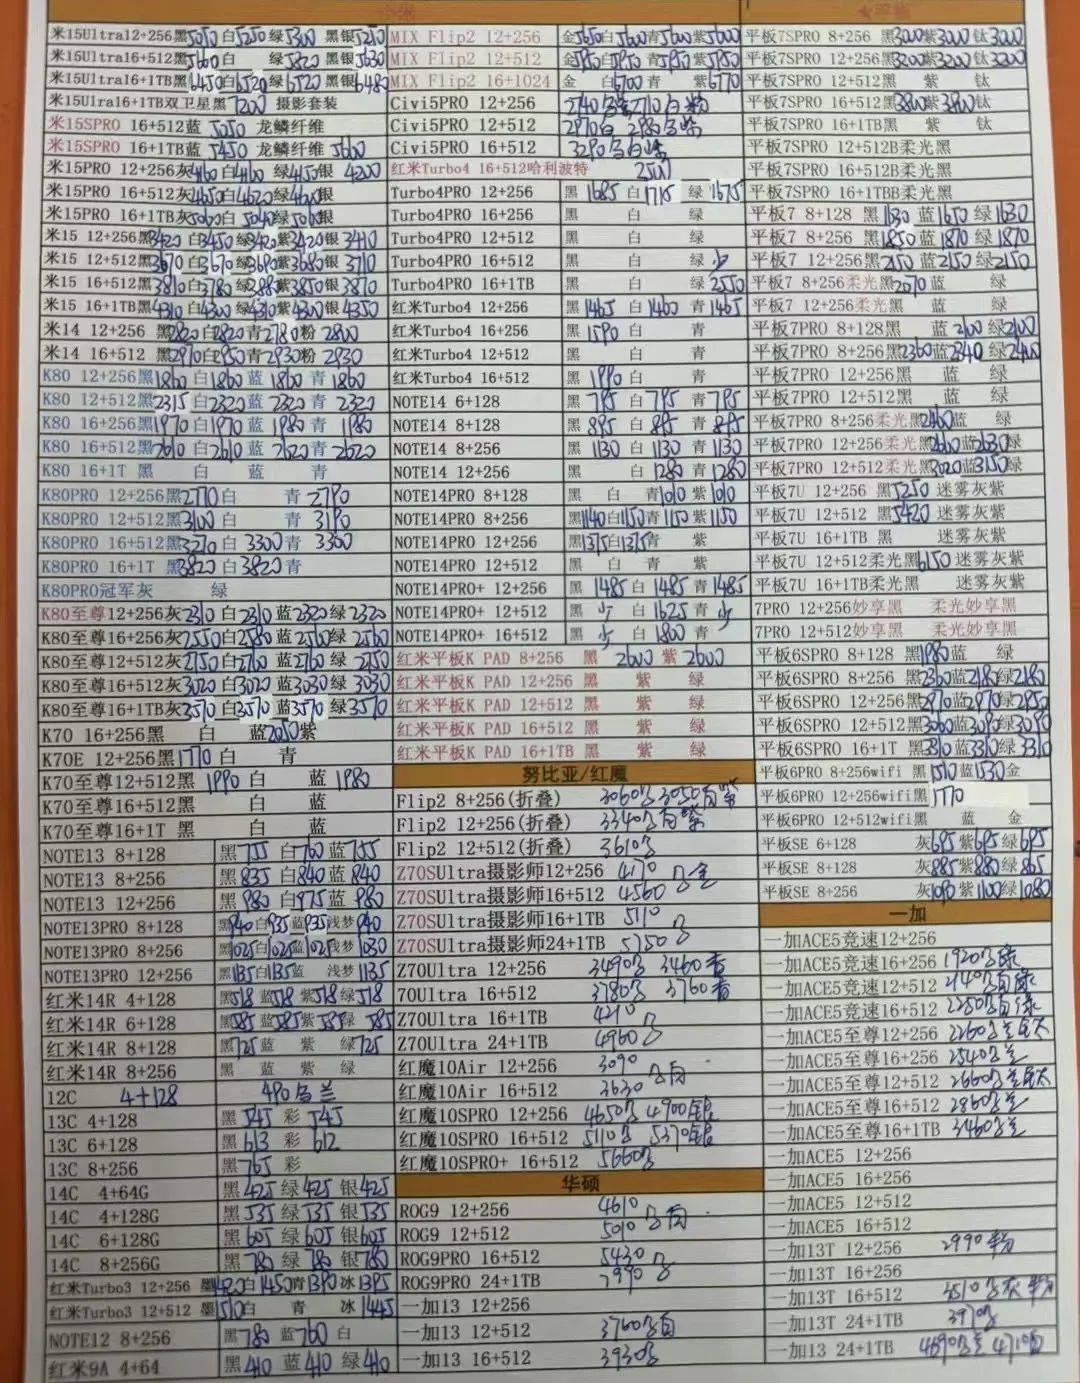 米15Ultra12+256黑5070白5250绿5300 黑银5210
米15Ultra16+512黑5600白 绿5820黑银5630
米15Ultra16+1TB黑6450白6520绿6520黑银6480
米15Ulra16+1TB双卫星黑7200 摄影套装
米15SPRO 16+512蓝5050 龙鳞纤维
米15SPRO 16+1TB蓝5450 龙鳞纤维5600
米15PRO 12+256灰4160白4160绿4150银4200
米15PRO 16+512灰4650白4620绿4600银
米15PRO 16+1TB灰5060白5040绿5060银
米15 12+256黑3420白3450绿3420紫3420银3410
米15 12+512黑3670白3670绿3690紫3680银3710
米15 16+512黑3810白3780绿 紫3850银3870
米15 16+1TB黑4310白4300绿4310紫4300银4350
米14 12+256 黑2820白2820青2780粉2800
米14 16+512 黑2970白2950青2930粉2930
K80 12+256黑1860白1860蓝1860青1860
K80 12+512黑2315白2320蓝2320青2320
K80 16+256黑1970白1970蓝1980青1980
K80 16+512黑2610白2610蓝2620青2620
K80 16+1T 黑 白 蓝 青
K80PRO 12+256黑2770白 青2790
K80PRO 12+512黑3100白 青3190
K80PRO 16+512黑3270白3300青3300
K80PRO 16+1T黑3820白3820青
K80PRO冠军灰 绿
K80至尊12+256灰2310白2310蓝2320绿2320
K80至尊16+256灰2550白2580蓝2560绿2560
K80至尊12+512灰2750白2760蓝2760绿2750
K80至尊16+512灰3020白3020蓝3030绿3030
K80至尊16+1TB灰3570白3570蓝3570绿3570
K70 16+256黑 白 蓝2050紫
K70E 12+256黑1770白 青
K70至尊12+512黑1990白 蓝1980
K70至尊16+512黑 白 蓝
K70至尊16+1T 黑 白 蓝
NOTE13 8+128 黑755白760蓝755
NOTE13 8+256 黑835白840蓝840
NOTE13 12+256 黑980白975蓝980
NOTE13PRO 8+128 黑940白935蓝935浅梦940
NOTE13PRO 8+256 黑1025白1025蓝1025浅梦1030
NOTE13PRO 12+256 黑1135白1135蓝 浅梦1135
红米14R 4+128 黑518蓝518紫518绿518
红米14R 6+128 黑585蓝585紫585绿585
红米14R 8+128 黑725蓝 紫 绿725
红米14R 8+256 黑 蓝 紫 绿
12C 4+128 490乌兰
13C 4+128 黑545彩545
13C 6+128 黑613彩612
13C 8+256 黑765彩
14C 4+64G 黑425绿425银425
14C 4+128G 黑535绿535银535
14C 6+128G 黑605绿605银605
14C 8+256G 黑780绿780银780
红米Turbo3 12+256 墨1420白1450青1390冰1395
红米Turbo3 12+512 墨1510白 青 冰1445
NOTE12 8+256 黑780蓝760白
红米9A 4+64 黑410蓝410绿410
MIX Flip2 12+256 金5650白5600青5600紫5600
MIX Flip2 12+512 金5950白5950青5950紫5950
MIX Flip2 16+1024 金 白6700青 紫6770
Civi5PRO 12+256 2740乌紫2710白粉
Civi5PRO 12+512 2970白 2980乌紫
Civi5PRO 16+512 3290乌白
红米Turbo4 16+512哈利波特 2500
Turbo4PRO 12+256 黑1685白1715绿1675
Turbo4PRO 16+256 黑 白 绿
Turbo4PRO 12+512 黑 白 绿
Turbo4PRO 16+512 黑 白 绿少
Turbo4PRO 16+1TB 黑 绿2550
红米Turbo4 12+256 黑1465白1460青1465
红米Turbo4 16+256 黑1590白 青
红米Turbo4 12+512 黑 白 青
红米Turbo4 16+512 黑1990白 青
NOTE14 6+128 黑795白795青795
NOTE14 8+128 黑895白895青895
NOTE14 8+256 黑1130白1130青1130
NOTE14 12+256 黑 白1280青1280
NOTE14PRO 8+128 黑 白 青1010紫1010
NOTE14PRO 8+256 黑1140白1150青1150紫1150
NOTE14PRO 12+256 黑1375白1375青 紫
NOTE14PRO 12+512 黑 白 青 紫
NOTE14PRO+ 12+256 黑1485白1485青1485
NOTE14PRO+ 12+512 黑少 白1625青少
NOTE14PRO+ 16+512 黑少 白1800青
红米平板K PAD 8+256 黑2600紫2600
红米平板K PAD 12+256 黑 紫 绿
红米平板K PAD 12+512 黑 紫 绿
红米平板K PAD 16+512 黑 紫 绿
红米平板K PAD 16+1TB 黑 紫 绿
努比亚/红魔
Flip2 8+256(折叠) 3060乌 3050白紫
Flip2 12+256(折叠) 3340乌白紫
Flip2 12+512(折叠) 3610乌
Z70SUltra摄影师12+256 4170
Z70SUltra摄影师16+512 4560 乌金
Z70SUltra摄影师16+1TB 5110
Z70SUltra摄影师24+1TB 5750乌
Z70Ultra 12+256 3490乌 3460青
70Ultra 16+512 3780乌 3760青
Z70Ultra 16+1TB 4210
Z70Ultra 24+1TB 4960乌
红魔10Air 12+256 3090
红魔10Air 16+512 3630 乌白
红魔10SPRO 12+256 4650乌 4900银
红魔10SPRO 16+512 5110乌 5370银
红魔10SPRO+ 16+512 5660乌
华硕
ROG9 12+256 4610
ROG9 12+512 5010 乌白
ROG9PRO 16+512 5430乌
ROG9PRO 24+1TB 7990
一加13 12+256
一加13 12+512 3760乌白
一加13 16+512 3930乌
平板7SPRO 8+256 黑3000紫3000钛3000
平板7SPRO 12+256黑3200紫3200钛3200
平板7SPRO 12+512黑 紫 钛
平板7SPRO 16+512黑3800紫3800钛
平板7SPRO 16+1TB黑 紫 钛
平板7SPRO 12+512B柔光黑
平板7SPRO 16+512B柔光黑
平板7SPRO 16+1TBB柔光黑
平板7 8+128 黑1630蓝1650绿1630
平板7 8+256 黑1850蓝1870绿1870
平板7 12+256黑2150蓝2150绿2150
平板7 8+256柔光黑2070蓝 绿
平板7 12+256柔光黑 蓝 绿
平板7PRO 8+128黑 蓝2100绿2100
平板7PRO 8+256黑2360蓝2340绿2400
平板7PRO 12+256黑 蓝 绿
平板7PRO 12+512黑 蓝 绿
平板7PRO 8+256柔光黑2460蓝 绿
平板7PRO 12+256柔光黑2600蓝2630绿
平板7PRO 12+512柔光黑3020蓝3150绿
平板7U 12+256 黑5250迷雾灰紫
平板7U 12+512 黑5420迷雾灰紫
平板7U 16+1TB 黑 迷雾灰紫
平板7U 12+512柔光黑6150迷雾灰紫
平板7U 16+1TB柔光黑 迷雾灰紫
7PRO 12+256妙享黑 柔光妙享黑
7PRO 12+512妙享黑 柔光妙享黑
平板6SPRO 8+128 黑1980蓝 绿
平板6SPRO 8+256 黑2360蓝2180绿2180
平板6SPRO 12+256黑2970蓝2970绿2950
平板6SPRO 12+512黑3060蓝3090绿3090
平板6SPRO 16+1T 黑3310蓝3310绿3310
平板6PRO 8+256wifi 黑1510蓝1530金
平板6PRO 12+256wifi黑1770
平板6PRO 12+512wifi黑 蓝 金
平板SE 6+128 灰695紫695绿695
平板SE 8+128 灰885紫880绿865
平板SE 8+256 灰1090紫1100绿1080
一加
一加ACE5竞速12+256
一加ACE5竞速16+256 1920乌绿
一加ACE5竞速12+512 2140乌白绿
一加ACE5竞速16+512 2250乌白绿
一加ACE5至尊12+256 2260乌兰钛
一加ACE5至尊16+256 2540乌兰
一加ACE5至尊12+512 2660乌兰钛
一加ACE5至尊16+512 2860乌兰
一加ACE5至尊16+1TB 3460乌兰
一加ACE5 12+256
一加ACE5 16+256
一加ACE5 12+512
一加ACE5 16+512
一加13T 12+256 2990粉
一加13T 16+256
一加13T 16+512 3510乌灰粉
一加13T 24+1TB 3970乌
一加13 24+1TB 4690乌兰 4710白